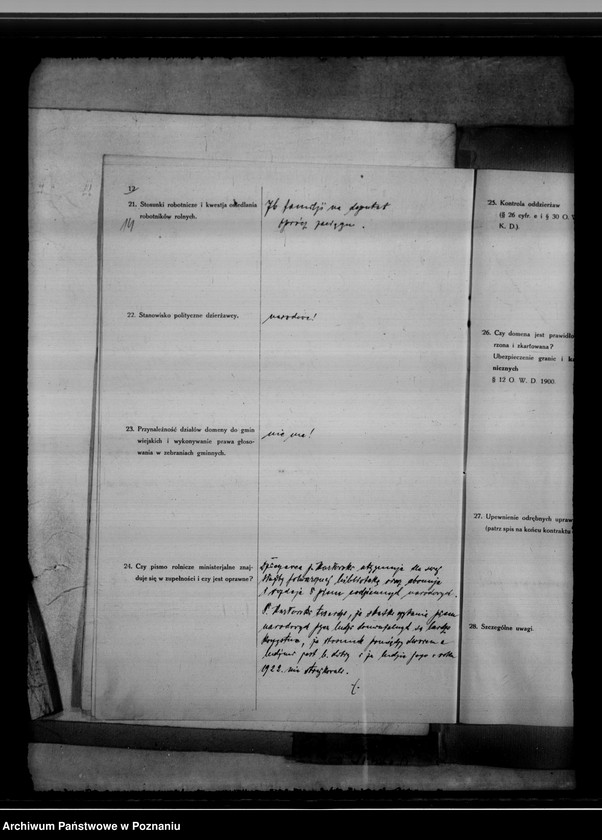 12
21. Stosunki robotnicze i kwestja osiedlania
robotników rolnych.
familji na deputat
oprócz zaciągu.
22. Stanowisko polityczne dzierżawcy.
narodowe!
23. Przynależność działów domeny do gmin
wiejskich i wykonywanie prawa głoso-
wania w zebraniach gminnych.
nie ma!
24. Czy pismo rolnicze ministerjalne znaj-
duje się w zupełności i czy jest oprawne?
Dzierżawca p. utrzymuje dla swej
służby folwarcznej bibliotekę oraz abonuje
i rozdaje 8 pism codziennych narodowych.
P. twierdzi, że skutki czytania pism
narodowych przez ludzi są bardzo
korzystne, że stosunek pomiędzy dworem a
ludźmi jest b. dobry i że ludzie jego w roku
1922 nie strajkowali.
25. Kontrola oddzierżaw
(§ 26 cyfr. e i § 30 O.
K. D.).
26. Czy domena jest prawidło
rzona i zkartowana?
Ubezpieczenie granic i
nicznych
§ 12 O. W. D. 1900.
27. Upewnienie odrębnych upraw
(patrz spis na końcu kontraktu
28. Szczególne uwagi.
Archiwum Państwowe w Poznaniu